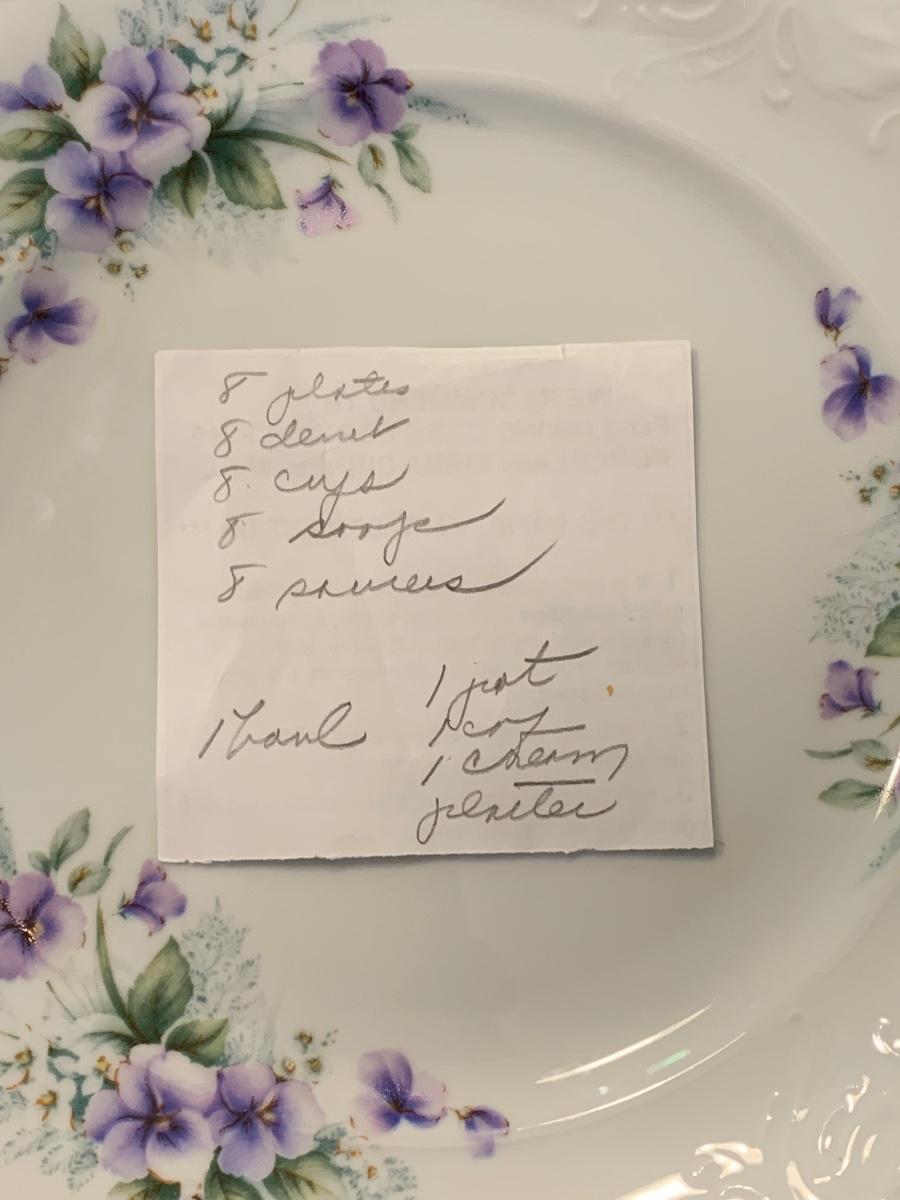 8 plates
8 desert
8 cups
8 soup
8 saucers
1 bowl
1 pot
1 cream
platter